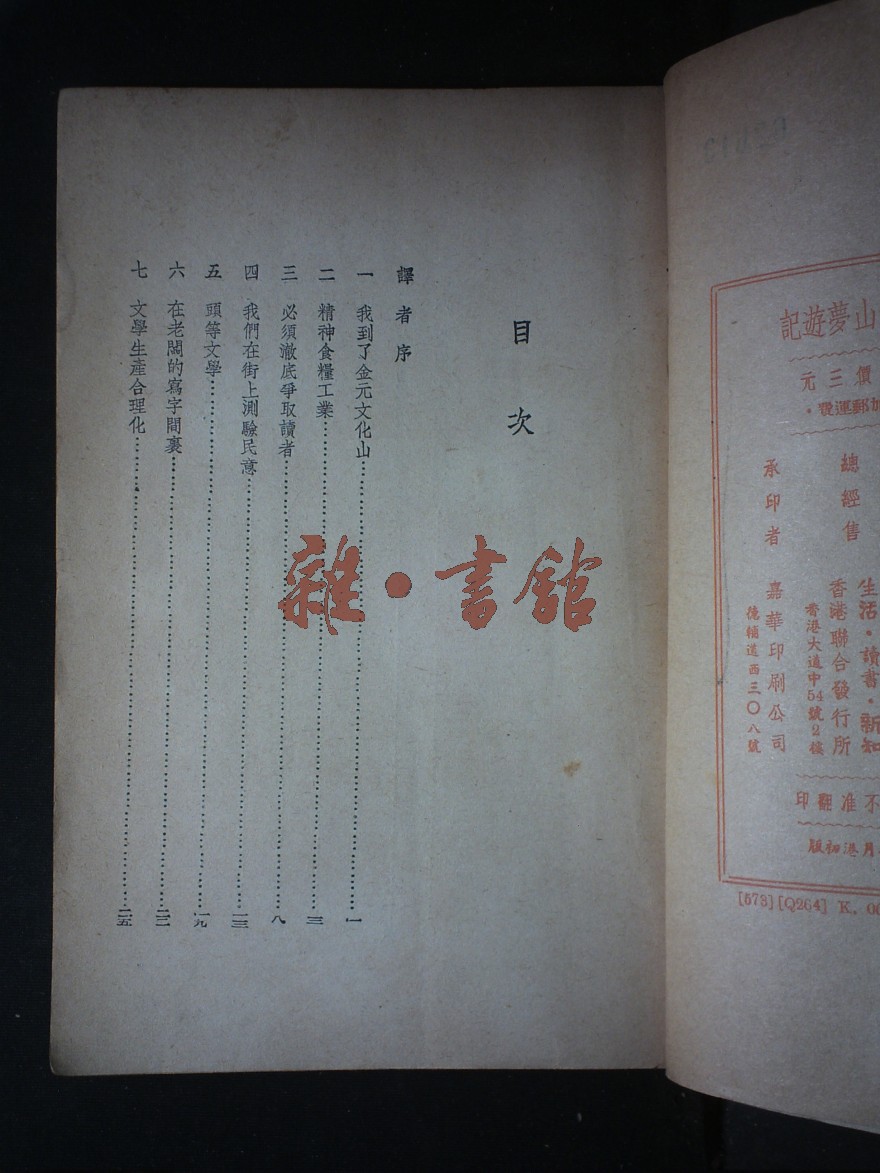 山夢遊記
價三元
加郵運費・
總經售
生活・讀書・新知
香港聯合發行所
香港大道中54號2樓
承印者 嘉華印刷公司
德輔道西三〇八號
不准翻印
月港初版
[573][Q264] K.
目次
譯者序
一 我到了金元文化山……一
二 精神食糧工業……三
三 必須澈底爭取讀者……八
四 我們在街上測驗民意……一三
五 頭等文學……一九
六 在老闆的寫字間裏……二二
七 文學生產合理化……二五
雜・書館